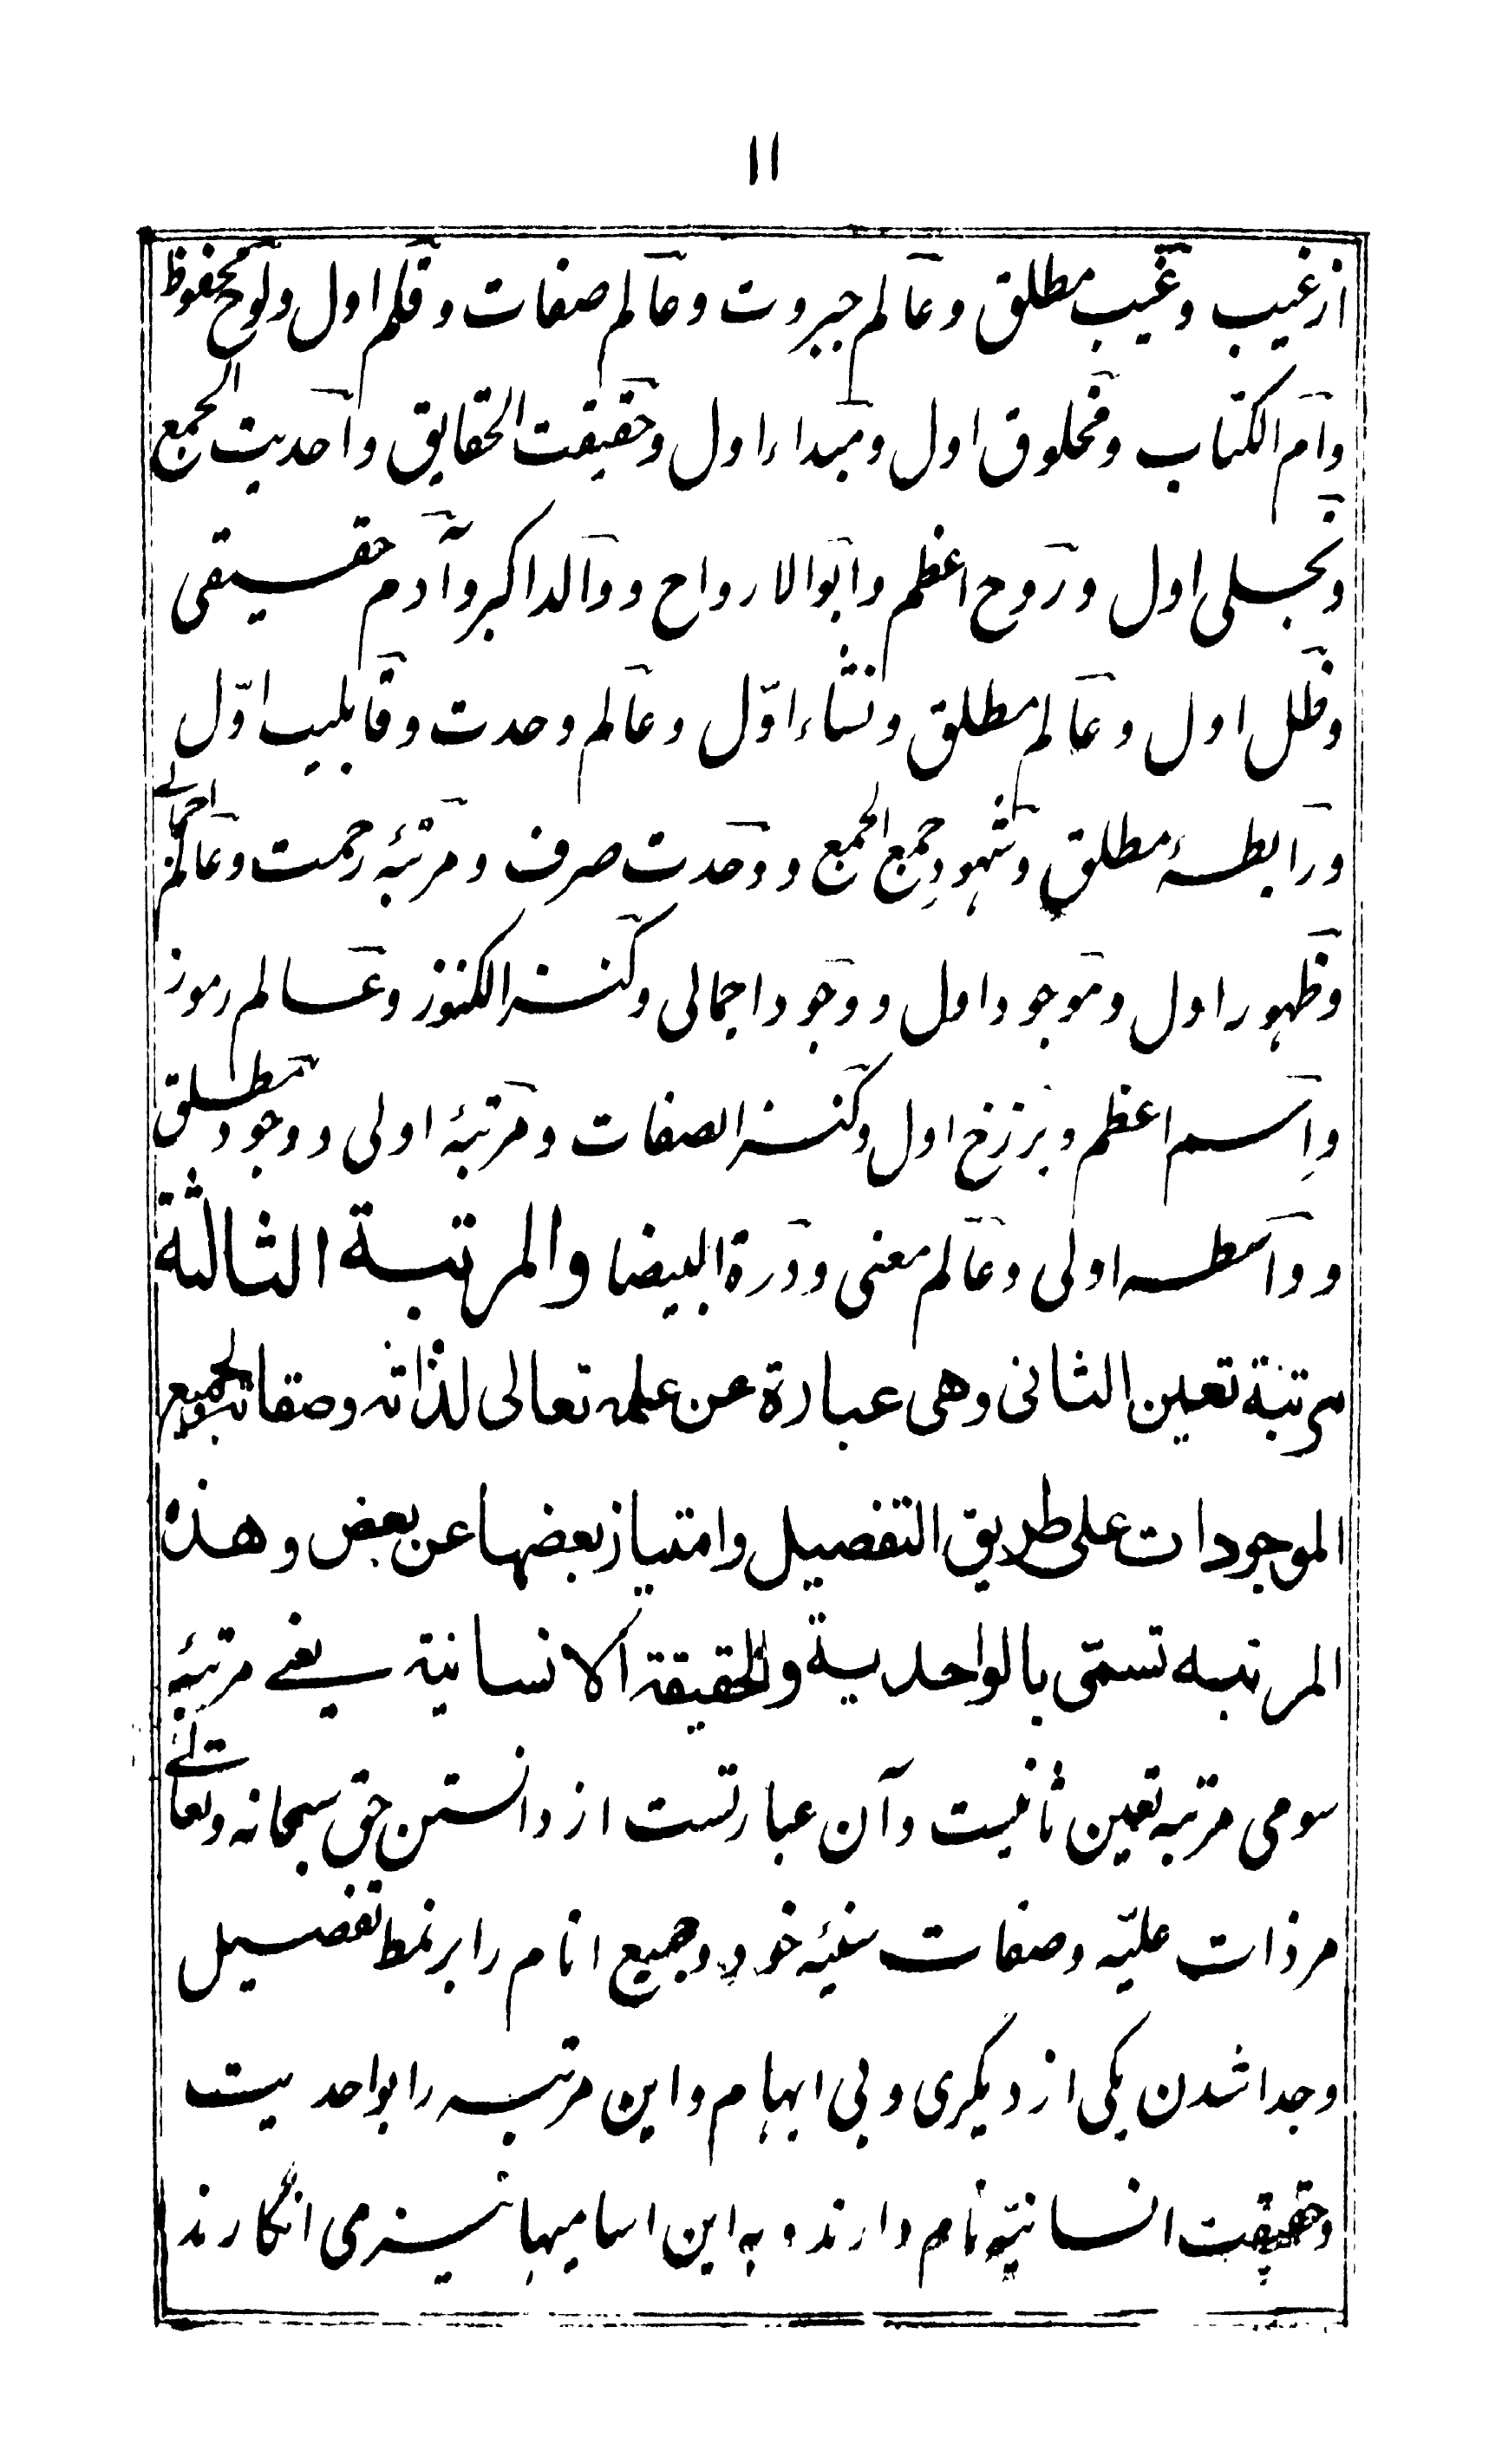 ۱۱
از غیب و غیب مطلق و عالم جبروت و عالم صفات و قلم اول و لوح محفوظ
و ام الکتاب و مخلوق اول و مبداء اول و حقیقت الحقایق و احدیت الجمع
و تجلی اول و روح اعظم و ابو الارواح و والد اکبر و آدم حقیقی
و ظل اول و عالم مطلق و نشاء اوّل و عالم وحدت و قابلیت اوّل
و رابطۂ مطلق و شهودِ جمع الجمع و وحدت صرف و مرتبۂ رحمت و عالم اجمالے
و ظهور اول و موجود اول و وجود اجمالی و کنز الکنوز و عالم رموز
و اِسم اعظم و برزخ اول و کنز الصفات و مرتبۂ اولی و وجود مطلق
و واسطه اولی و عالم معنی و درة البیضا والمرتبة الثالثة
مرتبة تعین الثانی وهی عبارة عن علمه تعالی لذاته وصفاته ولجمیع
الموجودات علی طریق التفصیل وامتیاز بعضها عن بعض وهذه
المرتبه تسمّی بالواحدیة والحقیقة الانسانیة یعنے مرتبۂ
سومی مرتبه تعین ثانیست و آن عبارتست از دانستن حق سبحانه و تعالے
مر ذات علیّه و صفات سنیّه خود و جمیع انام را بر نمط تفصیل
و جدا شدن یکی از دیگری و بی ابهام و این مرتبه را بواحدیت
و حقیقت انسانیّه نام دارند و به این اسامیها نیز می انگارند